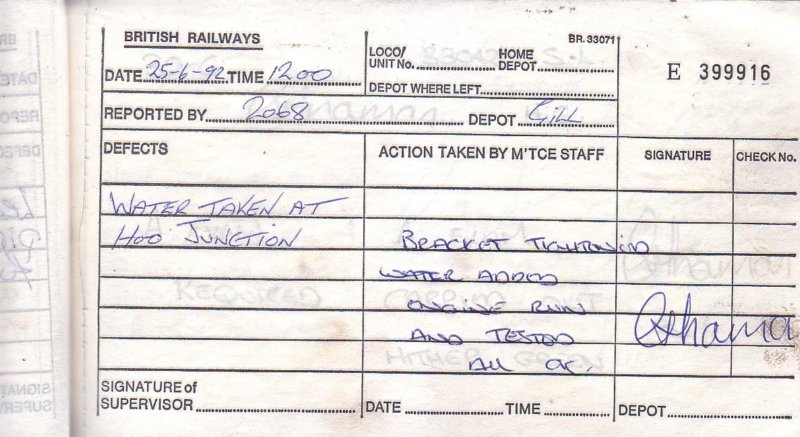 BRITISH RAILWAYS
BR. 33071
DATE 25-6-92 TIME 1200
LOCO/ UNIT No. HOME DEPOT
DEPOT WHERE LEFT
E 399916
REPORTED BY 2068 DEPOT GILL
DEFECTS
ACTION TAKEN BY M'TCE STAFF
SIGNATURE
CHECK No.
WATER TAKEN AT
HOO JUNCTION
BRACKET TIGHTENED
WATER ADDED
ENGINE RUN
AND TESTED
ALL OK.
SIGNATURE of
SUPERVISOR
DATE TIME DEPOT
REQUIRED
HITHER GREEN